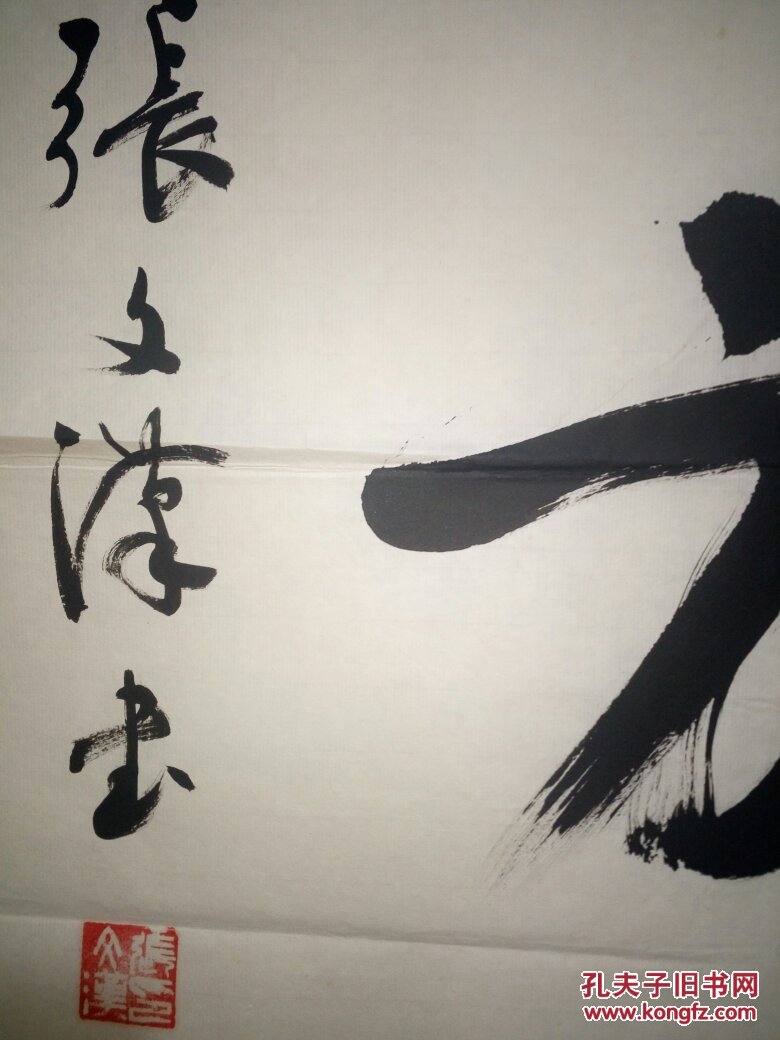 張文漢书
張文漢
孔夫子旧书网
www.kongfz.com